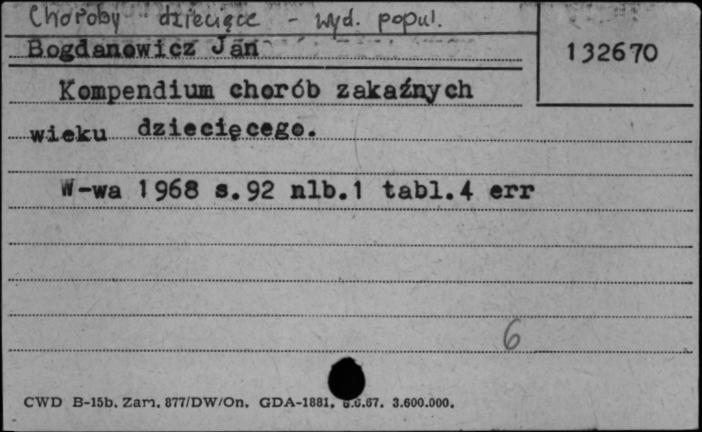 Choroby dziecięce - wyd. popul.
Bogdanowicz Jan
132670
Kompendium chorób zakaźnych
wieku dziecięcego.
W-wa 1968 s.92 nlb.1 tabl.4 err
6
CWD B-15b. Zam. 877/DW/On. GDA-1881. 6.6.67. 3.600.000.